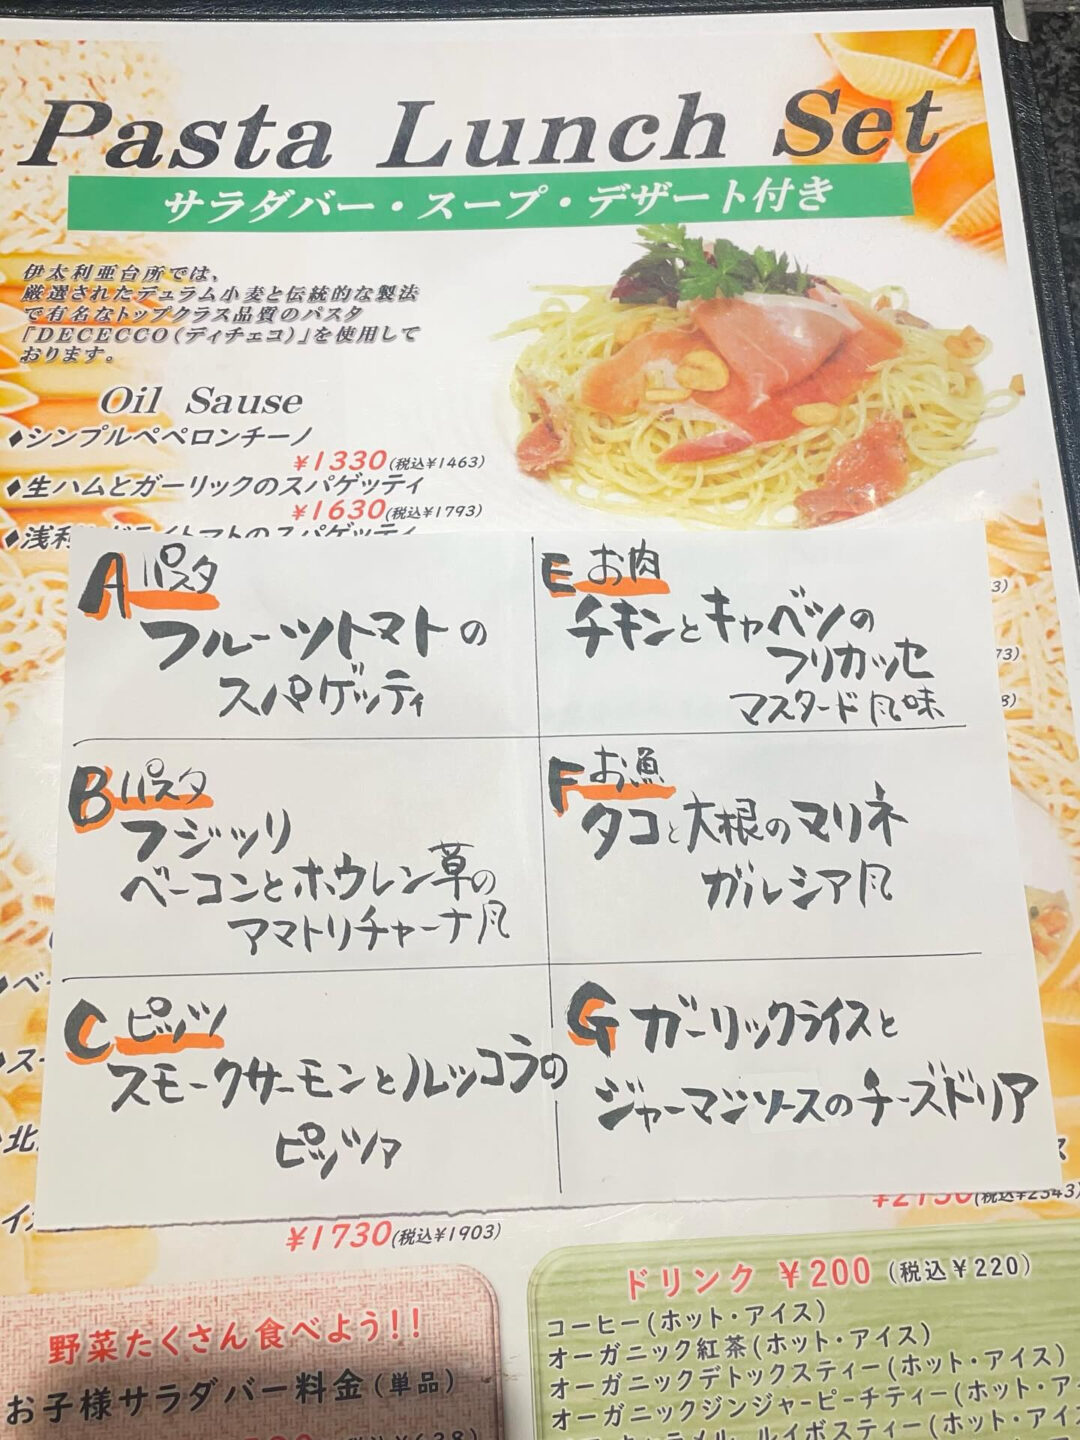 Pasta Lunch Set
サラダバー・スープ・デザート付き
伊太利亜台所では、
厳選されたデュラム小麦と伝統的な製法
で有名なトップクラス品質のパスタ
「DECECCO(ディチェコ)」を使用して
おります。
Oil Sause
♦シンプルペペロンチーノ
¥1330(税込¥1463)
♦生ハムとガーリックのスパゲッティ
¥1630(税込¥1793)
A パスタ
フルーツトマトの
スパゲッティ
B パスタ
フジッリ
ベーコンとホウレン草の
アマトリチャーナ風
C ピッツァ
スモークサーモンとルッコラの
ピッツァ
E お肉
チキンとキャベツの
フリカッセ
マスタード風味
F お魚
タコと大根のマリネ
ガルシア風
G ガーリックライスと
ジャーマンソースのチーズドリア
¥1730(税込¥1903)
野菜たくさん食べよう!!
お子様サラダバー料金(単品)
ドリンク ¥200 (税込¥220)
コーヒー(ホット・アイス)
オーガニック紅茶(ホット・アイス)
オーガニックデトックスティー(ホット・アイス)
オーガニックジンジャーピーチティー(ホット・ア